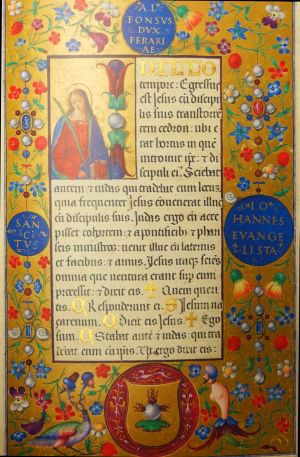 AL
FONSVS
DVX
FERARI
AE
IN ILLO
tempore: Egressus
est Jesus cu discip
lis suis trans torre
tem cedron: ubi e
rat hortus in que
introiuit ipe: et di
scipuli ei. Sciebat
autem et iudas qui tradebat eum locu
quia frequenter Jesus conuenerat illuc
cu discipulis suis. Judas ergo cu acce
pisset cohortem: et a pontificib et phari
seis ministros: uenit illuc cu laternis
et facibus: et armis. Jesus itaqz sciēs
omnia que uentura erant sup eum
processit: et dixit eis. Quem queri
tis. Responderunt ei. Jesum na
zarenum. Dicit eis Jesus. Ego
sum. Stabat aute et iudas. qui tra
debat eum cu ipis. Vt ergo dixit eis:
SAN
CTVS
IO
HANNES
EVANGE
LISTA